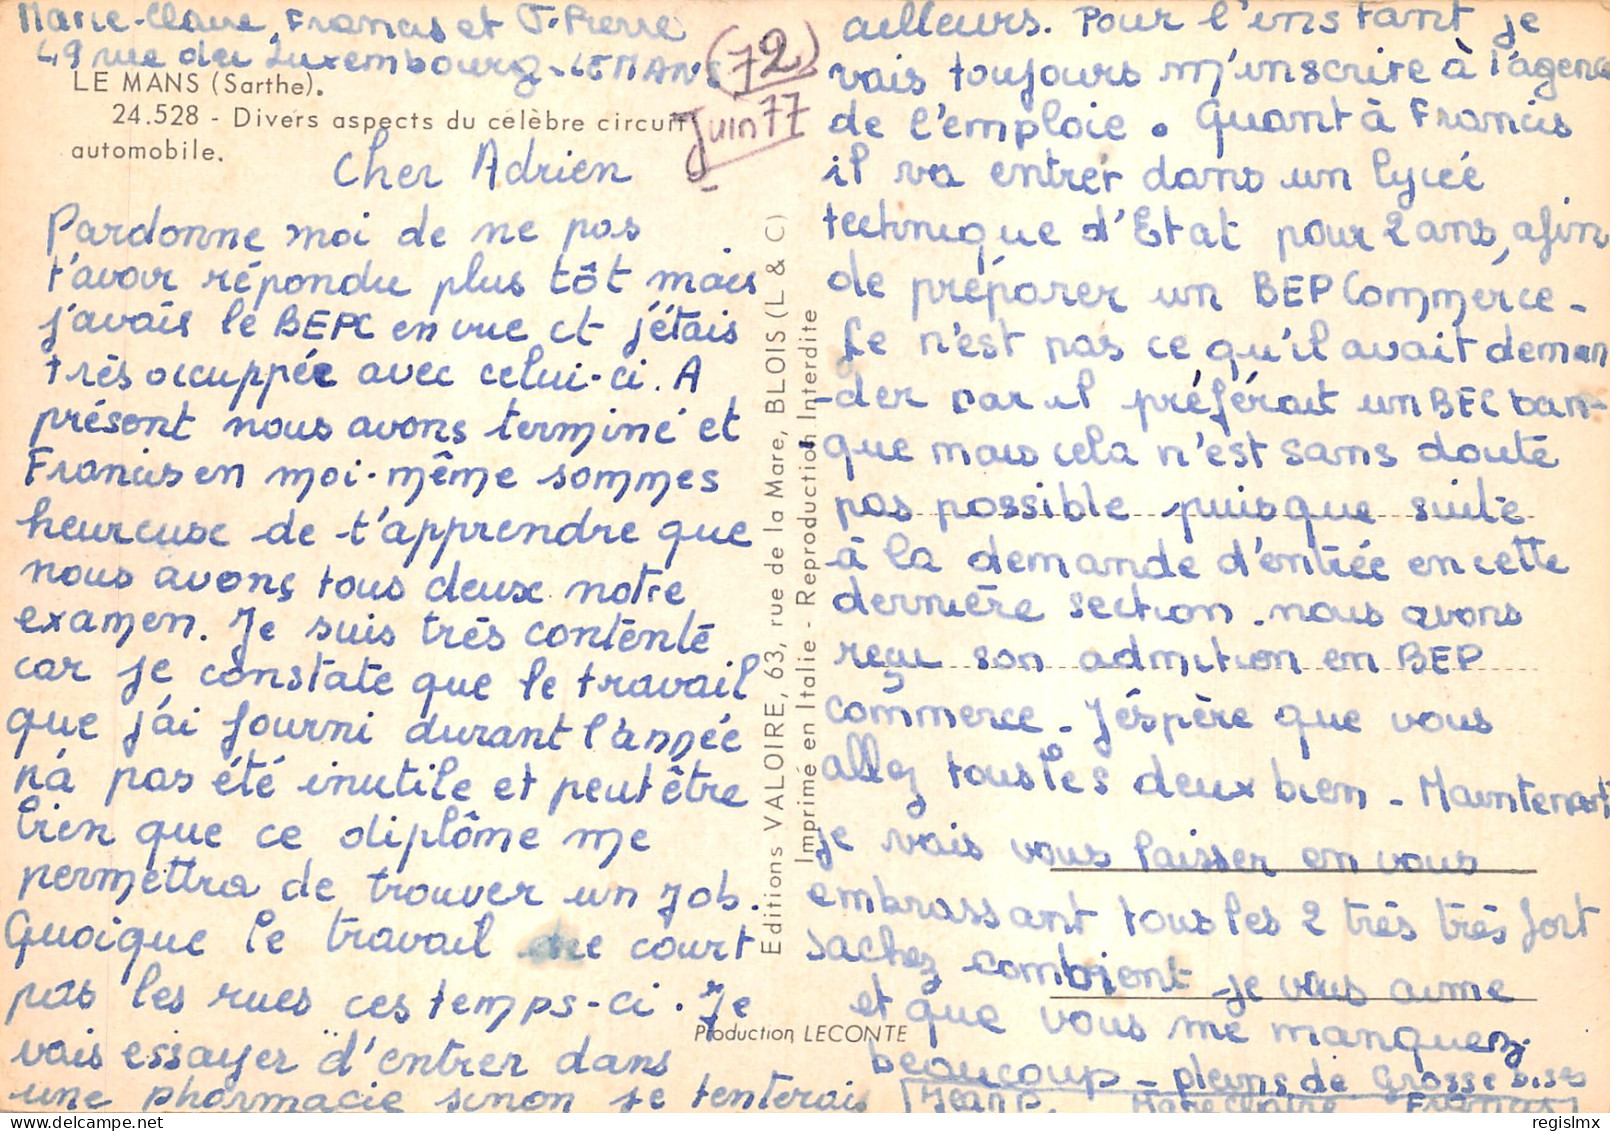 Marie-Claire, Francis et J-Pierre
49 rue du Luxembourg - LE MANS
(72)
LE MANS (Sarthe).
24.528 - Divers aspects du célèbre circuit
automobile.
Juin 77
Cher Adrien
Pardonne moi de ne pas
t'avoir répondu plus tôt mais
j'avais le BEPC en vue et j'étais
très occuppée avec celui-ci. A
présent nous avons terminé et
Francis en moi-même sommes
heureuse de t'apprendre que
nous avons tous deux notre
examen. Je suis très contente
car je constate que le travail
que j'ai fourni durant l'année
n'a pas été inutile et peut être
bien que ce diplôme me
permettra de trouver un job.
Quoique le travail ne court
pas les rues ces temps-ci. Je
vais essayer d'entrer dans
une pharmacie sinon je tenterais
ailleurs. Pour l'instant je
vais toujours m'inscrire à l'agence
de l'emploie. Quant à Francis
il va entrer dans un lycée
technique d'Etat pour 2 ans, afin
de préparer un BEP Commerce -
Ce n'est pas ce qu'il avait deman
-der car il préférait un BEC ban-
que mais cela n'est sans doute
pas possible puisque suite
à la demande d'entrée en cette
dernière section. nous avons
reçu son admition en BEP
commerce - J'espère que vous
allez tous les deux bien - Maintenant
je vais vous laisser en vous
embrassant tous les 2 très très fort
sachez combient je vous aime
et que vous me manquez
beaucoup - pleins de Grosse bises
Jean P. Marie Claire Francis
Editions VALOIRE, 63, rue de la Mare, BLOIS (L & C)
Imprimé en Italie - Reproduction Interdite
Production LECONTE
regislmx